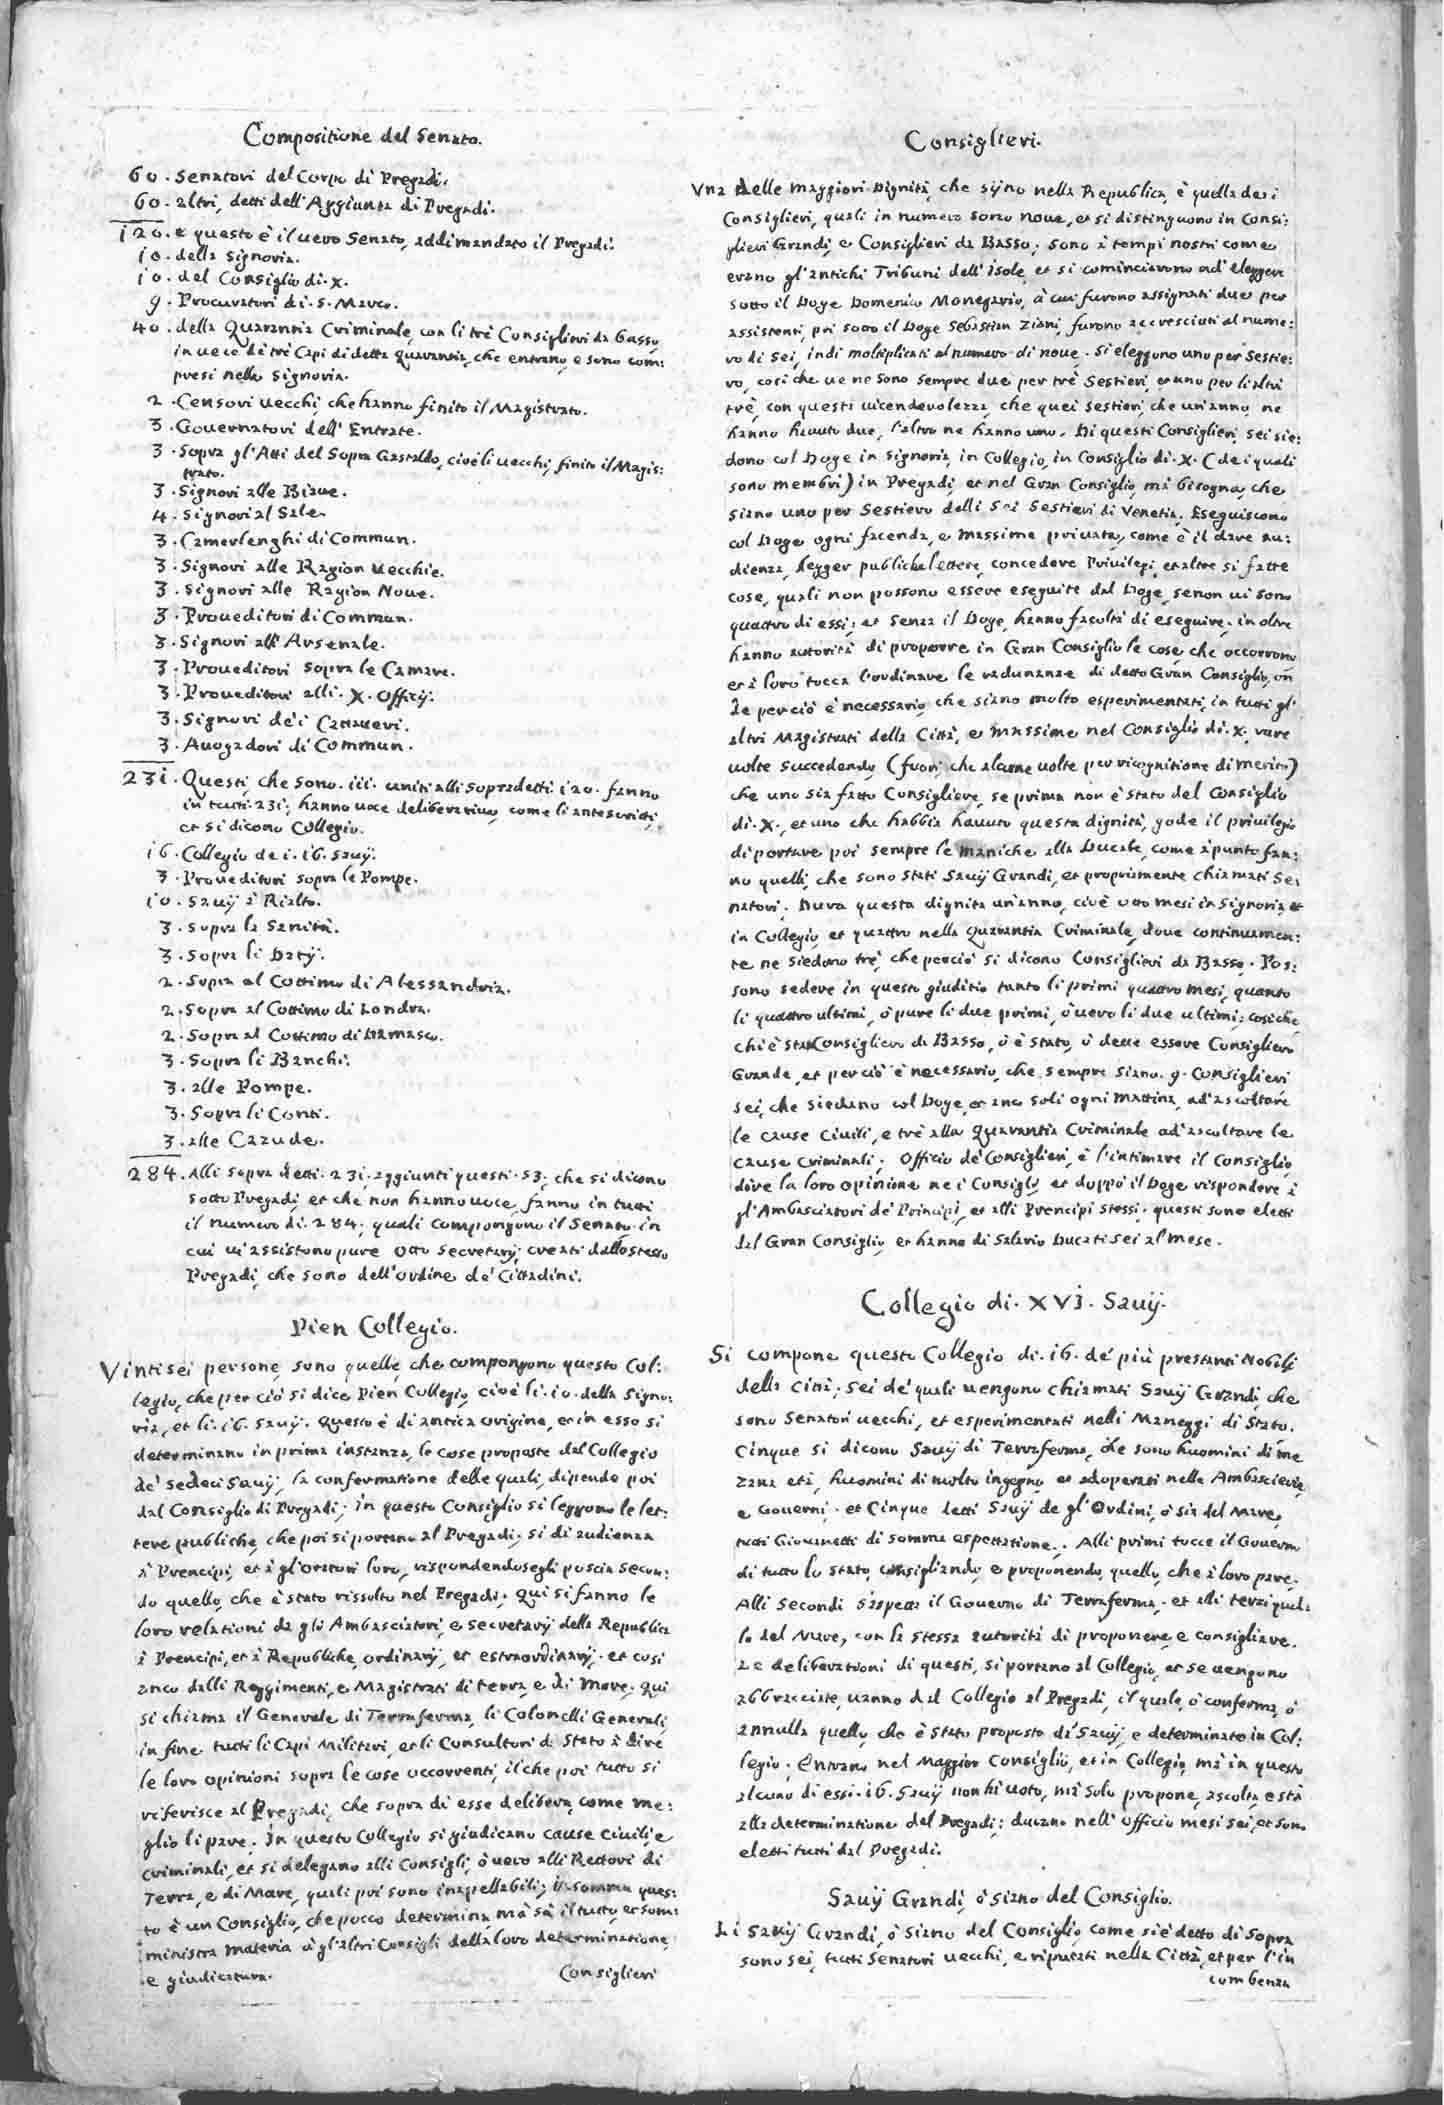 Compositione del Senato.
60. Senatori del Corpo di Pregadi.
60. altri, detti dell'Aggiunta di Pregadi.
120. e questo è il uero Senato, addimandato il Pregadi.
10. della Signoria.
10. del Consiglio di .X.
9. Procuratori di .S. Marco.
40. della Quarantia Criminale, con li trè Consiglieri da basso,
in uece de trè Capi di detta Quarantia, che entrano, e sono com:
presi nella Signoria.
2. Censori uecchi, che hanno finito il Magistrato.
3. Gouernatori dell'Entrate.
3. Sopra gl'Atti del Sopra Gastaldo, cioè li uecchi, finito il Magis:
trato.
3. Signori alle Biaue.
4. Signori al Sale.
3. Camerlenghi di Commun.
3. Signori alle Ragion Vecchie.
3. Signori alle Ragion Noue.
3. Proueditori di Commun.
3. Signori all'Arsenale.
3. Proueditori sopra le Camere.
3. Proueditori alli .X. Officij.
3. Signori de i Cattaueri.
3. Auogadori di Commun.
231. Questi, che sono .iii. uniti alli sopradetti .120. fanno
in tutti .231; hanno uoce deliberatiua, come li antescritti,
et si dicono Collegio.
16. Collegio de i .16. Sauij.
3. Proueditori sopra le Pompe.
10. Sauij à Rialto.
3. Sopra la Sanità.
3. Sopra li Datij.
2. Sopra al Cottimo di Alessandria.
2. Sopra al Cottimo di Londra.
2. Sopra al Cottimo di Damasco.
3. Sopra li Banchi.
3. alle Pompe.
3. Sopra li Conti.
3. alle Cazude.
284. Alli sopra detti .231. aggiunti questi .53, che si dicono
sotto Pregadi, et che non hanno uoce, fanno in tutti
il numero di .284. quali compongono il Senato, in
cui ui assistono pure otto Secretarij creati dallo stesso
Pregadi, che sono dell'ordine de Cittadini.
Pien Collegio.
Vintisei persone, sono quelle, che compongono questo Col:
legio, che per ciò si dice Pien Collegio, cioè li .10. della Signo:
ria, et li .16. Sauij. Questo è di antica origine, et in esso si
determinano in prima instanza, le cose proposte dal Collegio
de' sedeci Sauij, la confermatione delle quali, dipende poi
dal Consiglio di Pregadi; in questo Consiglio si leggono le let:
tere publiche, che poi si portano al Pregadi, si dà audienza
à Prencipi, et à gl'oratori loro, rispondendosegli poscia secon:
do quello, che è stato rissolto nel Pregadi. Qui si fanno le
loro relationi da gli Ambasciatori, e Secretarij della Republica
à Prencipi, et à Republiche, ordinarij, et estraordinarij. et così
anco dalli Reggimenti, e Magistrati di terra, e di Mare, Qui
si chiama il Generale di Terraferma, li Colonelli Generali,
in fine tutti li Capi Militari, et li Consultori di Stato à dire
le loro opinioni sopra le cose occorrenti, il che poi tutto si
riferisce al Pregadi, che sopra di esse delibera, come me:
glio li pare. In questo Collegio si giudicano cause ciuili, e
criminali, et si delegano alli Consigli, ò uero alli Rettori di
Terra, e di Mare, quali poi sono inapellabili; in somma ques:
to è un Consiglio, che pocco determina, mà sà il tutto, et som:
ministra materia à gl'altri Consigli della loro determinatione,
e giudicatura.
Consiglieri
Consiglieri.
Vna delle maggiori Dignità, che sijno nella Republica, è quella de i
Consiglieri, quali in numero sono noue, et si distinguono in Consi:
glieri Grandi, e Consiglieri da Basso; sono à tempi nostri come
erano gl'antichi Tribuni dell'Isole, et si cominciarono ad'eleggere
sotto il Doge Domenico Monegario, à cui furono assignati due per
assistenti, poi sotto il Doge Sebastian Ziani, furono accresciuti al nume:
ro di sei, indi moltiplicati al numero di noue. Si eleggono uno per Sestie:
ro, così che ue ne sono sempre due per trè Sestieri, et uno per li altri
trè, con questa uicendeuolezza, che quei Sestieri, che un'anno ne
hanno hauuto due, l'altro ne hanno uno. Di questi Consiglieri, sei sie:
dono col Doge in Signoria, in Collegio, in Consiglio di .X. (de i quali
sono membri) in Pregadi, et nel Gran Consiglio, mà bisogna, che
siano uno per Sestiero delli Sei Sestieri di Venetia. Eseguiscono
col Doge ogni facenda, e massime priuata, come è il dare au:
dienza, legger publiche lettere, concedere Priuilegi, et altre si fatte
cose, quali non possono essere eseguite dal Doge, se non ui sono
quattro di essi; et senza il Doge, hanno facoltà di eseguire, in oltre
hanno autorità di proporre in Gran Consiglio le cose, che occorrono
et à loro tocca l'ordinare le radunanze di detto Gran Consiglio, on
de perciò è necessario, che siano molto esperimentati, in tutti gl'
altri Magistrati della Città, e massime nel Consiglio di .X. rare
uolte succedendo (fuori, che alcune uolte per ricognitione di merito)
che uno sia fatto Consigliere, se prima non è stato del Consiglio
di .X., et uno che habbia hauuto questa dignità, gode il priuilegio
di portare poi sempre le maniche alla Ducale, come à punto fan:
no quelli, che sono stati Sauij Grandi, et propriamente chiamati Se:
natori. Dura questa dignità un'anno, cioè otto mesi in Signoria, et
in Collegio, et quattro nella Quarantia Criminale, doue continuamen:
te ne siedono trè, che perciò si dicono Consiglieri da Basso. Pos:
sono sedere in questo giuditio tanto li primi quattro mesi, quanto
li quattro ultimi, ò pure li due primi, ò uero li due ultimi; così che
chi è stato Consigliero da Basso, ò è stato, ò deue essere Consigliero
Grande, et perciò è necessario, che sempre siano .9. Consiglieri
sei, che siedano col Doge, et anco soli ogni mattina, ad'ascoltare
le cause Ciuili, e trè alla Quarantia Criminale ad'ascoltare le
cause Criminali. Officio de' Consiglieri, è l'intimare il Consiglio,
dire la loro opinione ne i Consigli, et doppò il Doge rispondere à
gl'Ambasciatori de' Principi, et alli Prencipi stessi. questi sono eletti
dal Gran Consiglio, et hanno di Salario Ducati sei al mese.
Collegio di .XVI. Sauij.
Si compone questo Collegio di .16. de' più prestanti Nobili
della città; sei de' quali uengono chiamati Sauij Grandi, che
sono Senatori uecchi, et esperimentati nelli Maneggi di Stato.
Cinque si dicono Sauij di Terraferma, che sono huomini di me
zana età, huomini di molto ingegno, et adoperati nelle Ambascierie,
e Gouerni. et Cinque detti Sauij de gl'Ordini, ò sia del Mare,
tutti Giouanetti di somma espettatione. Alli primi tocca il Gouerno
di tutto lo stato, consigliando, e proponendo, quello, che à loro pare.
Alli Secondi s'aspetta il Gouerno di Terraferma, et alli terzi quel:
lo del Mare, con la stessa autorità di proponere, e consigliare.
Le deliberationi di questi, si portano al Collegio, et se uengono
abbracciate, uanno dal Collegio al Pregadi, il quale, ò conferma, ò
annulla quello, che è stato proposto da' Sauij, e determinato in Col:
legio. Entrano nel Maggior Consiglio, et in Collegio, mà in questo
alcuno di essi .16. Sauij non hà uoto, mà solo propone, ascolta, e stà
alla determinatione del Pregadi; durano nell'Officio mesi sei, et sono
eletti tutti dal Pregadi.
Sauij Grandi, ò siano del Consiglio.
Li Sauij Grandi, ò siano del Consiglio, come si è detto di sopra
sono sei, tutti Senatori uecchi, e riputati nella Città, et per l'in
combenza